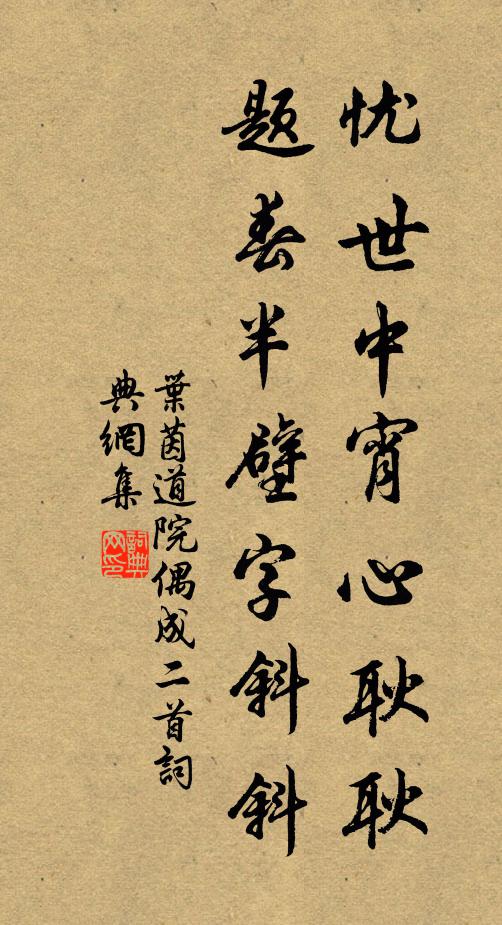 忧世中宵心耿耿
题春半壁字斜斜
葉茵道院偶成二首詞
典網集
詞典
网印